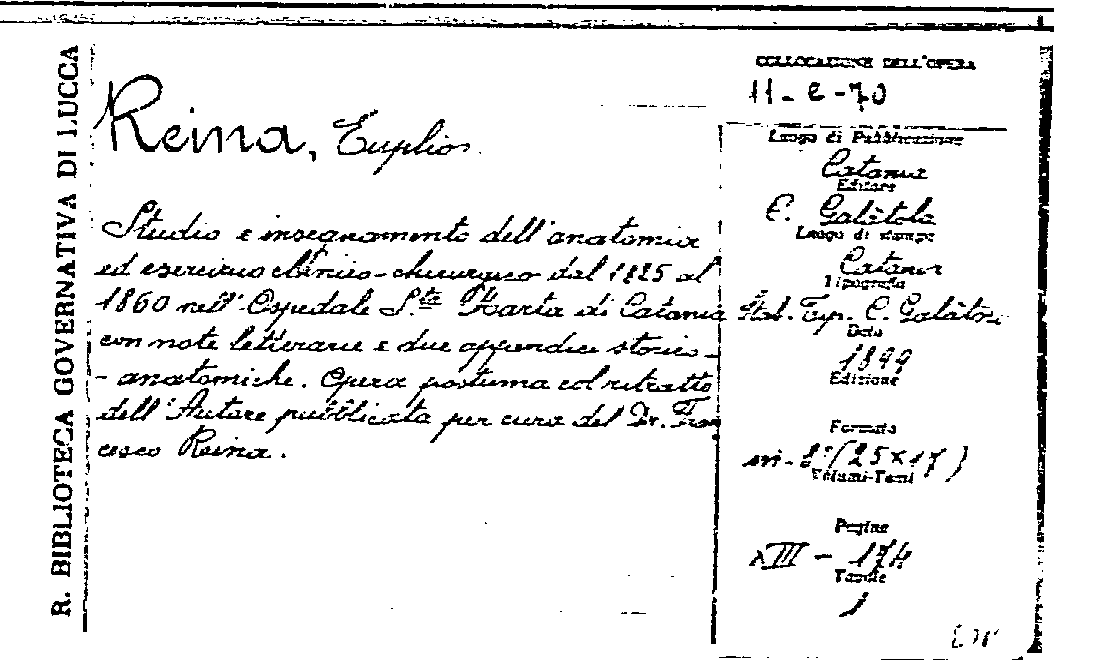 R. BIBLIOTECA GOVERNATIVA DI LUCCA
Reina, Euplio
Studio e insegnamento dell'anatomia
ed esercizio clinico-chirurgico dal 1825 al
1860 nell'Ospedale S.ta Marta di Catania
con note letterarie e due appendici storico-
-anatomiche. Opera postuma col ritratto
dell'Autore pubblicata per cura del Dr. Fran
cesco Reina.
COLLOCAZIONE DELL'OPERA
11-e-70
Luogo di Pubblicazione
Catania
Editore
C. Galàtola
Luogo di stampa
Catania
Tipografia
Stab. Tip. C. Galàtola
Data
1899
Edizione
Formato
in-8°(25×17)
Volumi-Tomi
Pagine
XIII - 174
Tavole
1